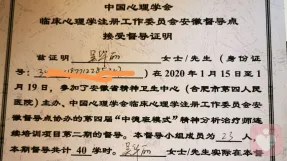 中国心理学会
临床心理学注册工作委员会安徽督导点
接受督导证明
兹证明 女士/先生（身份证
号： ）在 2020 年 1 月 15 日至 1
月 19 日，参加了安徽省精神卫生中心（合肥市第四人民
医院）主办、中国心理学会临床心理学注册工作委员会安
徽督导点协办的第四届“中德模式”精神分析治疗师连
续培训项目第二期的督导。本督导小组成员为 23 人，
本期督导共计 40 学时。 女士/先生实际在本